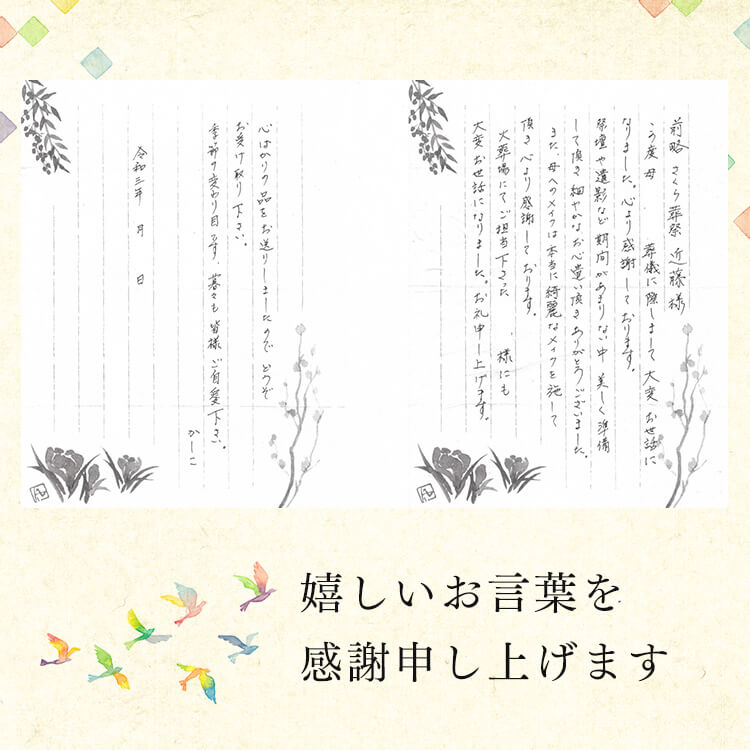 前略 さくら葬祭 近藤様
この度 母 葬儀に際しまして 大変 お世話に
なりました。心より感謝しております。
祭壇や遺影など 期間があまりない中 美しく準備
して頂き 細やかなお心遣い頂き ありがとうございました。
また 母へのメイクは 本当に綺麗なメイクを施して
頂き 心より感謝しております。
火葬場にて ご担当下さった 様にも
大変お世話になりました。お礼申し上げます。
心ばかりの品を お送りしましたので どうぞ
お受け取り下さい。
季節の変わり目です。 皆様 ご自愛下さい。
かしこ
令和三年 月 日
嬉しいお言葉を
感謝申し上げます